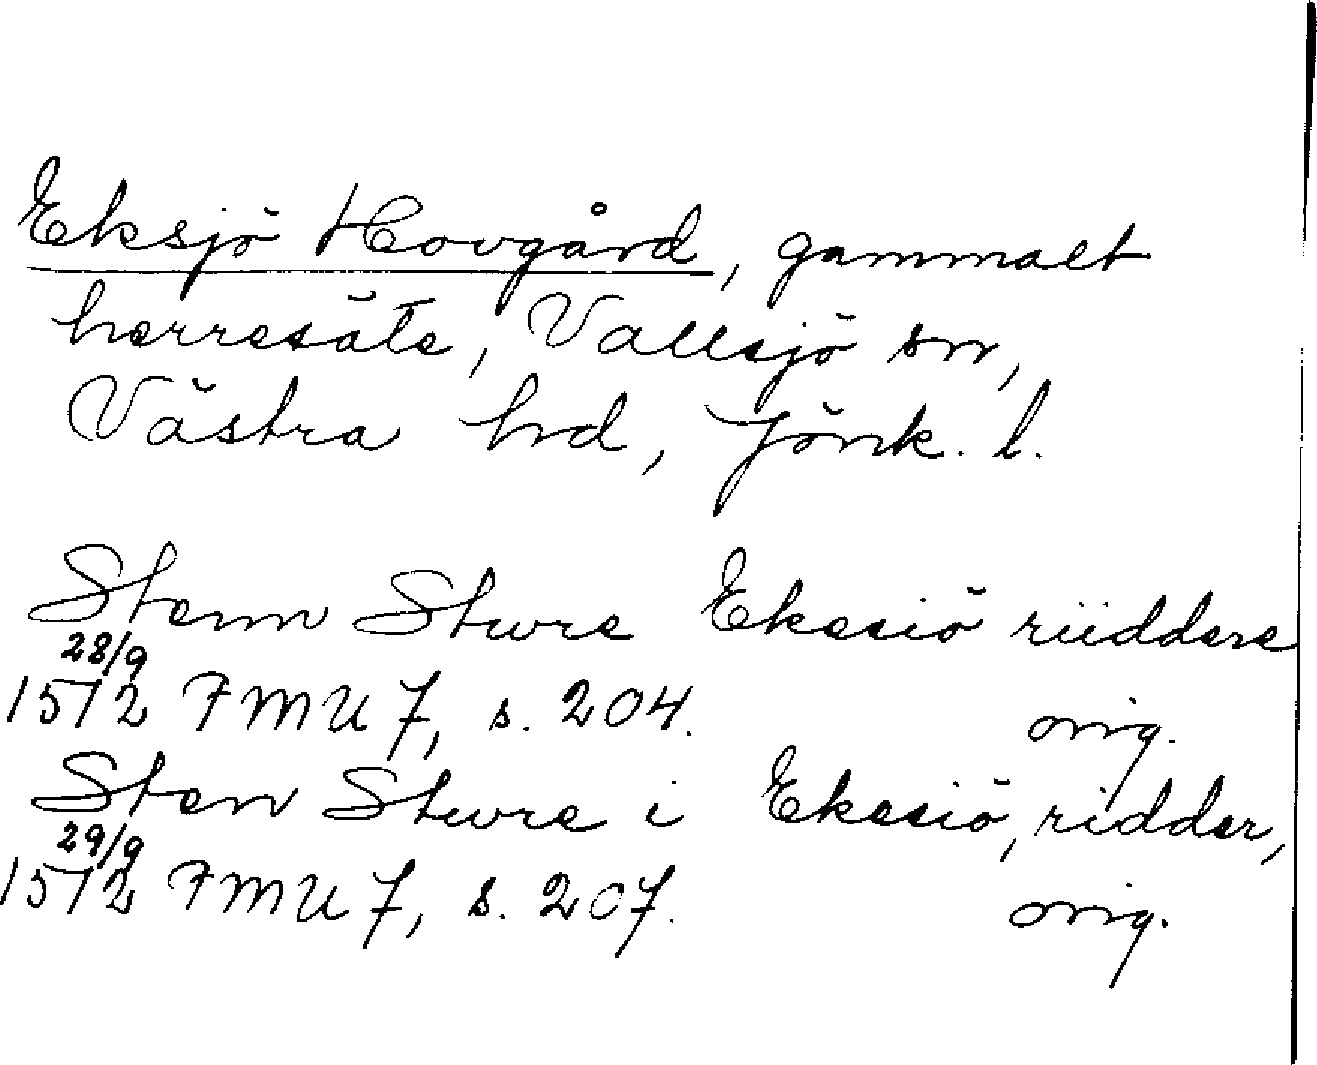 Eksjö Hovgård, gammalt
herresäte, Vallsjö sn,
Västra hd, Jönk. l.
Stenn Sture Ekesiö riiddere
28/9
1512 FMU 7, s. 204. orig.
Sten Sture i Ekesiö, ridder,
29/9
1512 FMU 7, s. 207. orig.